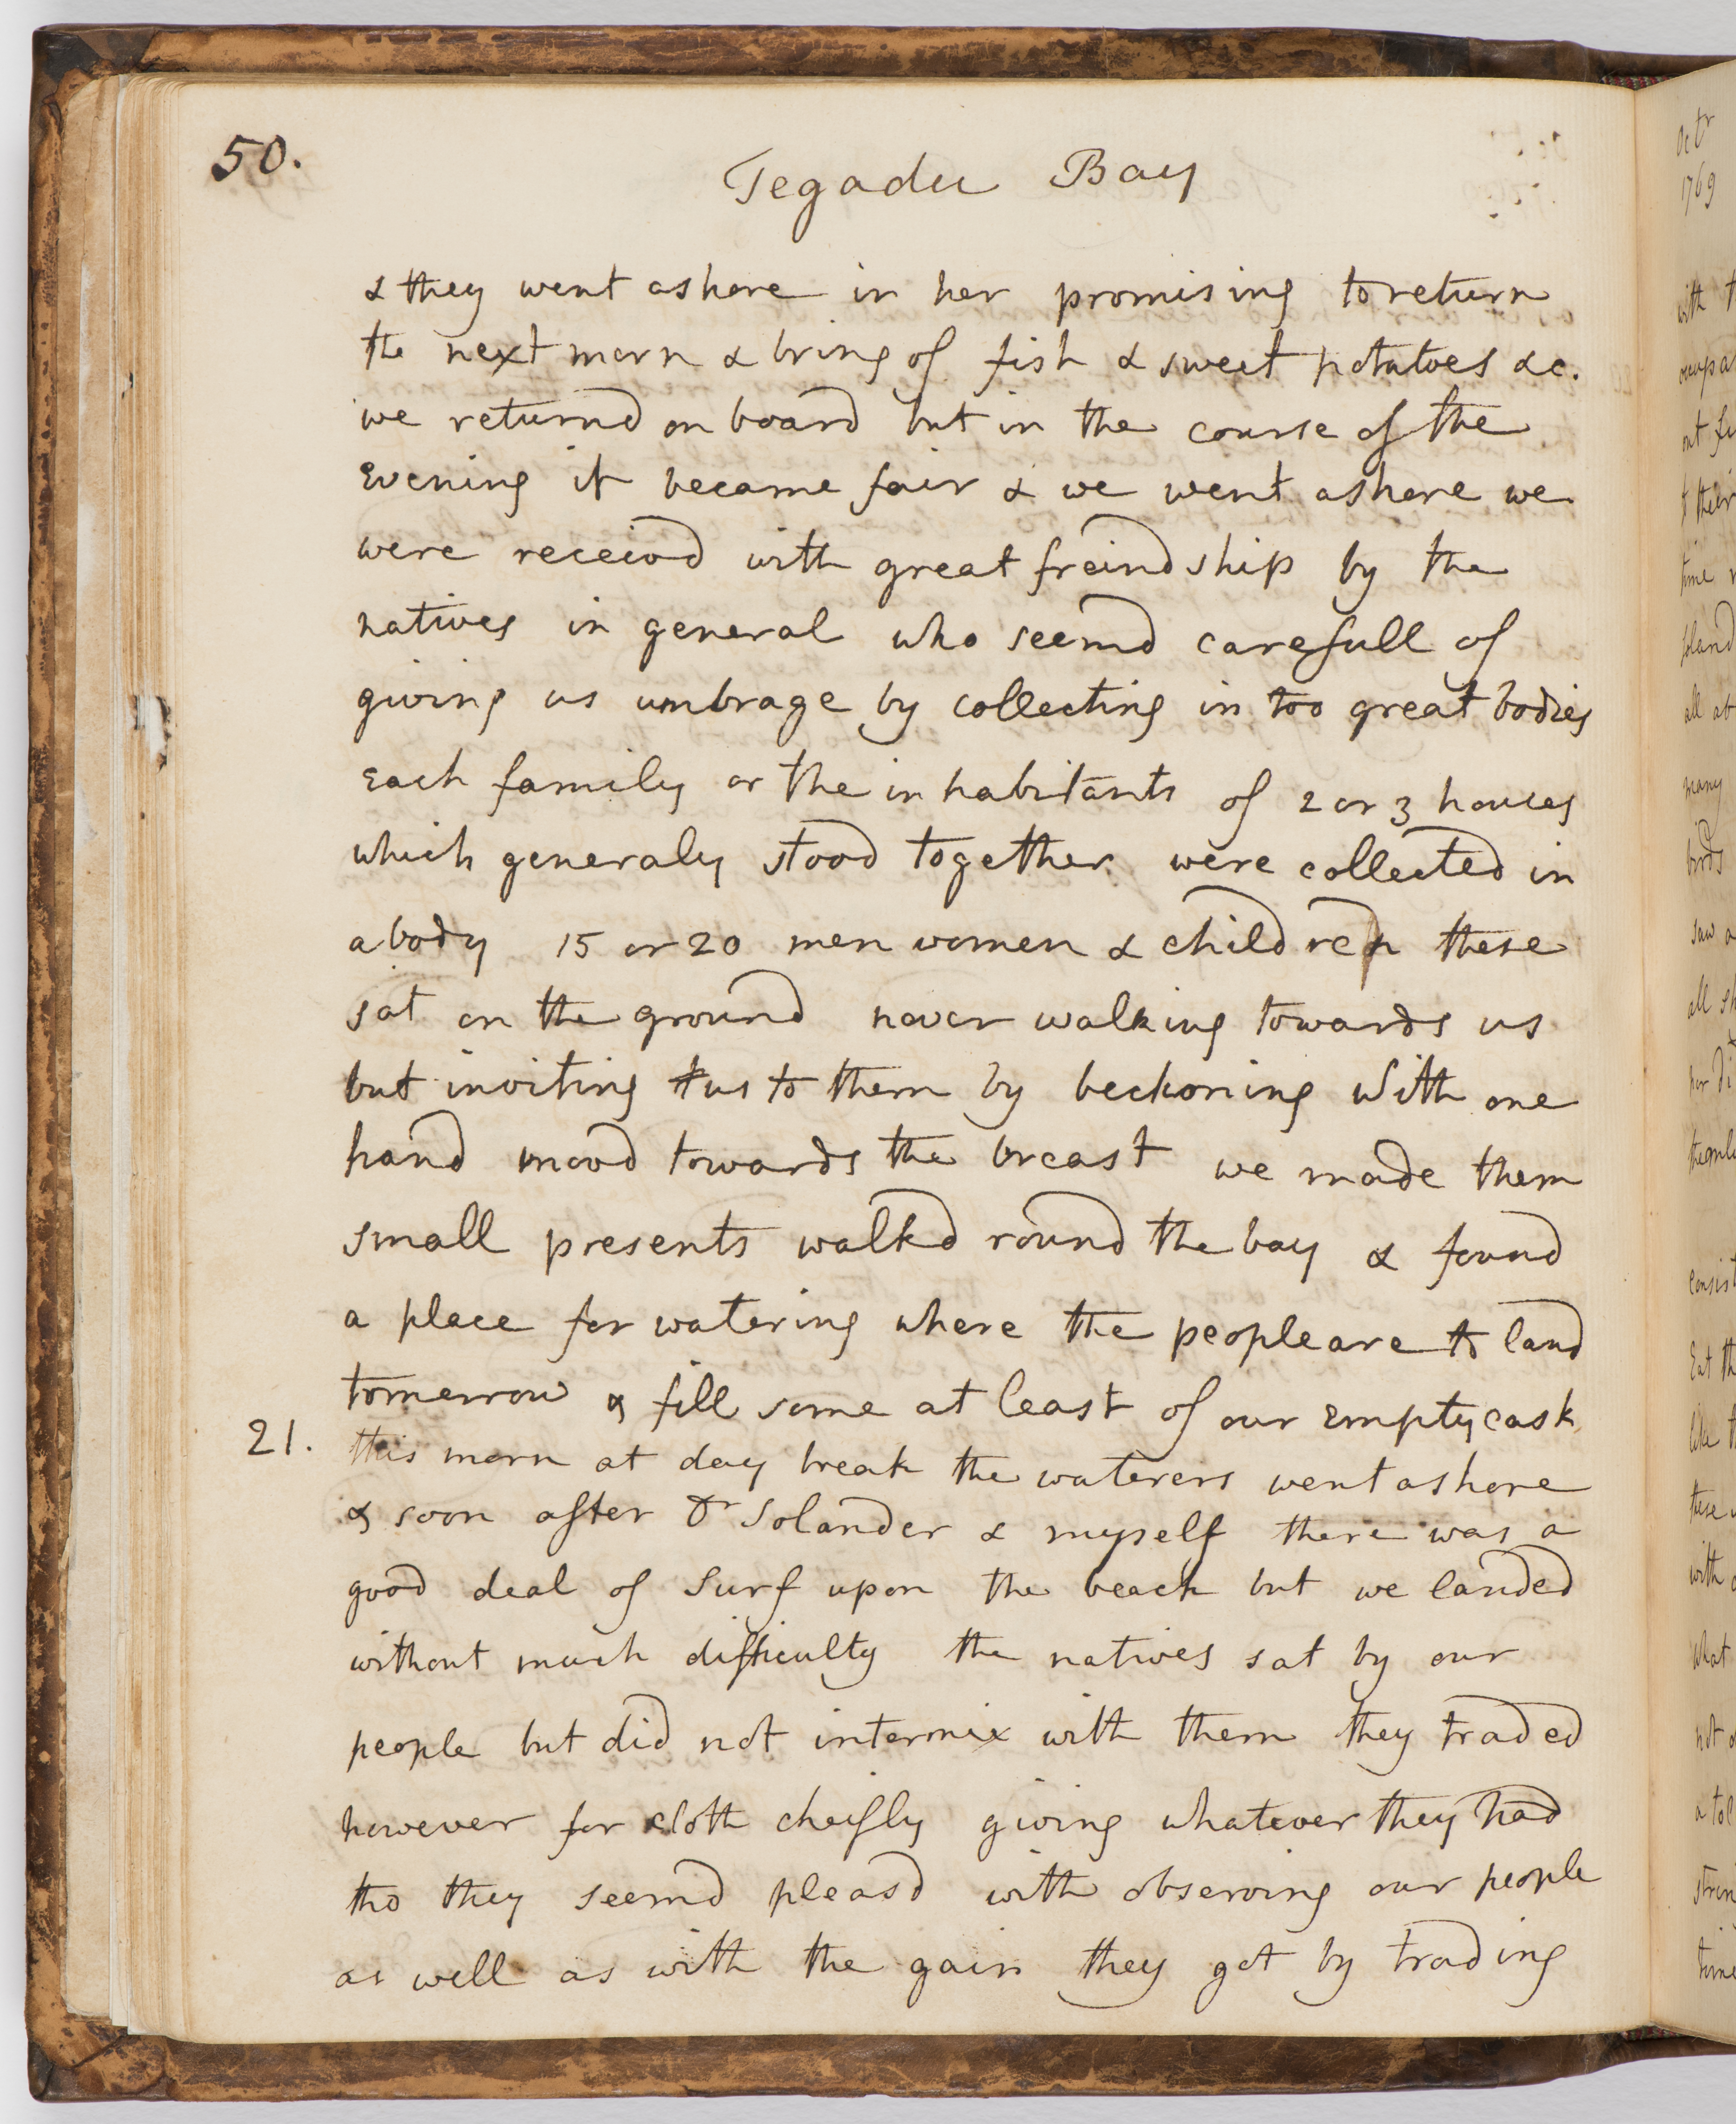 50.
Tegadu Bay
& they went ashore in her promising to return
the next morn & bring of fish & sweet potatoes &c.
we returnd on board but in the course of the
Evening it became fair & we went ashore we
were receivd with great freindship by the
natives in general who seemd carefull of
giving us umbrage by collecting in too great bodies
Each family or the inhabitants of 2 or 3 houses
which generaly stood together were collected in
a body 15 or 20 men women & children these
sat on the ground never walking towards us
but inviting us to them by beckoning with one
hand movd towards the breast we made them
small presents walkd round the bay & found
a place for watering where the people are to land
tomorrow & fill some at least of our Empty cask
21. this morn at day break the waterers went ashore
& soon after Dr Solander & myself there was a
good deal of Surf upon the beach but we landed
without much difficulty the natives sat by our
people but did not intermix with them they traded
however for cloth cheifly giving whatever they had
tho they seemd pleasd with observing our people
as well as with the gain they got by trading
Octr
1769
with
out
their
time
all
many
birds
saw
all
consist
Eat
like
these
with
what
not